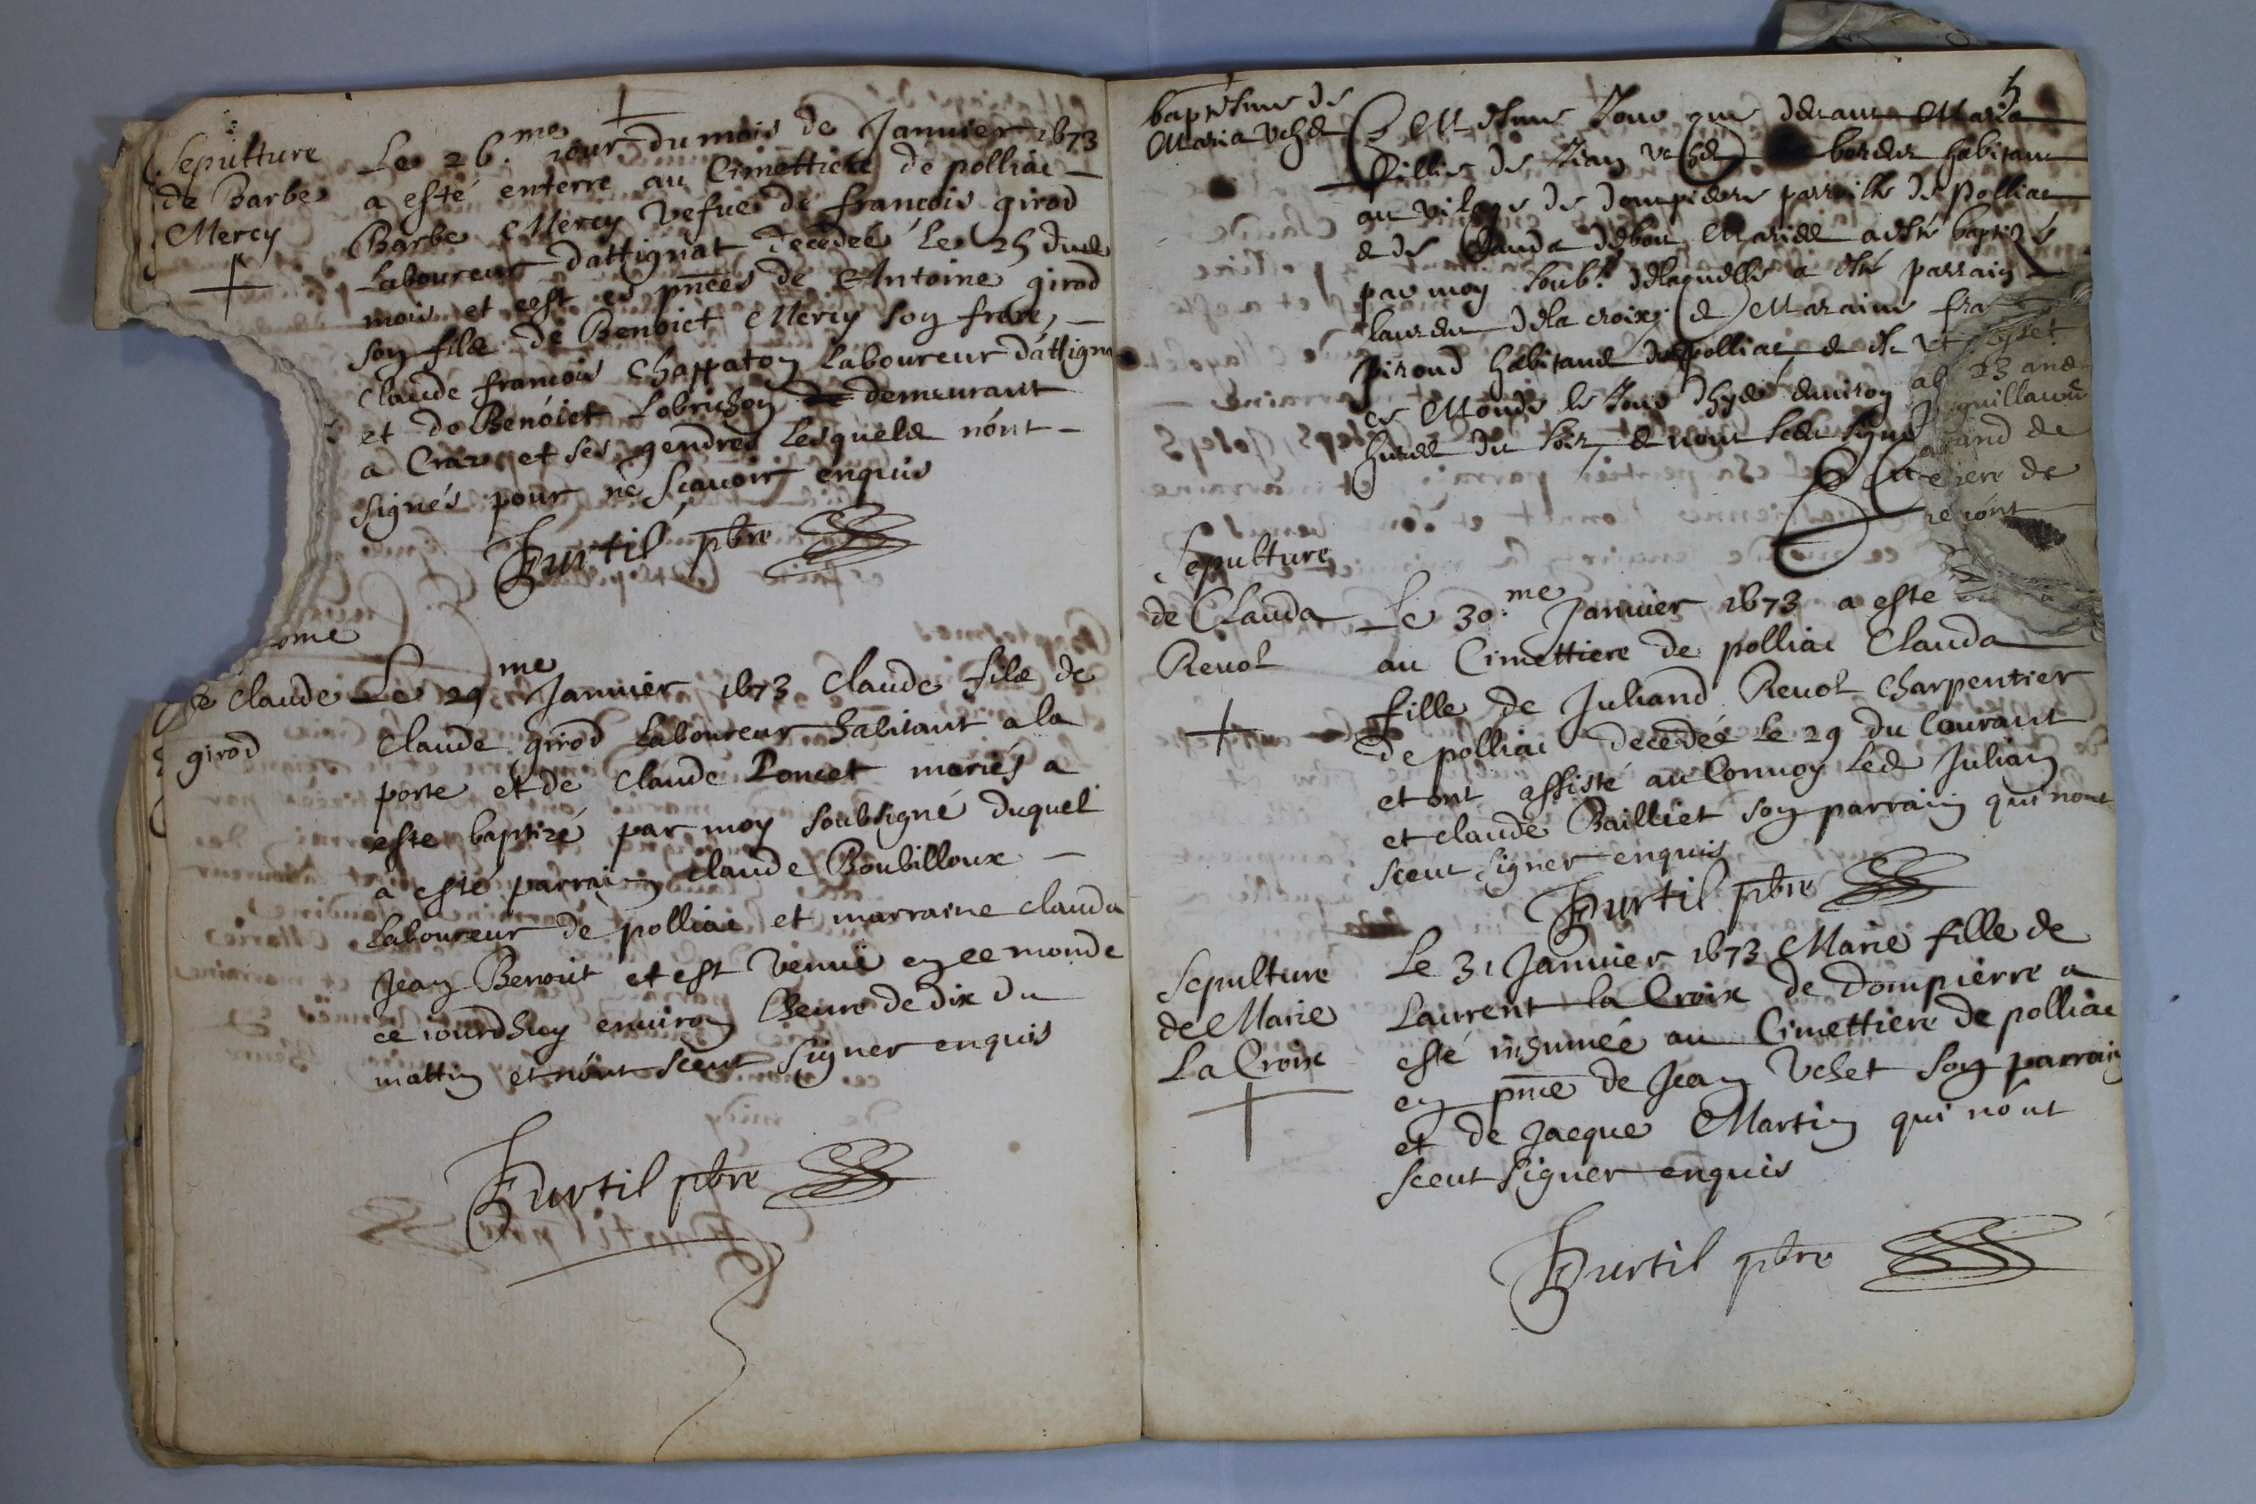 Sepulture
de Barbe
Mercy
Le 26.me iour du mois de Januier 1673
a esté enterre au Cimettiere de polliac
Barbe Mercy vefue de francois girod
Laboureur dattignat decedeé le 25 dud
mois et cest en pnces de Antoine girod
son filz de Benoict Mercy son frere,
Claude francois Chappaton Laboureur dattigna
et de Benoict Lobrichon demeurant
a Craz et ses gendres Lesquelz nont
signés pour ne scauoir enquis
Hurtil pbre
ome
e Claude
girod
Le 29me Januier 1673 Claude filz de
Claude girod Laboureur habitant a la
porte et de Claude Poncet mariés a
esté baptizé par moy soubsigné duquel
a esté parrain Claude Boubilloux
Laboureur de polliac et marraine clauda
Jean Benoit et est venu en ce monde
ce iourdhuy enuiron lheure de dix du
mattin et nont sceut signer enquis
Hurtil pbre
5
baptesme de
Maria Vchet
Mesme Jour que deuant Maria
fillie de Jean Vchet habitant
au vilage de dompiere parroisse de Polliac
& de Clauda Mariez a esté baptizé
par moy soub.é delaquelle a esté parrain
laurent dela croix & Maraine fra
pirond habitand de polliac & est
ce Monde le Jour dhyer enuiron
heures du soir & nont sceu signe
guillaume
and de
iere de
re iont
Sepulture
de Clauda
Reuol
Le 30.me Januier 1673 a esté
au Cimettiere de polliac Clauda
fille de Juliand Reuol Charpentier
de polliac decedeé le 29 du Courant
et ont assisté au Conuoy led Julian
et claude Bailliet son parrain qui nont
sceut signer enquis
Hurtil pbre
Sepulture
de Marie
La Croix
Le 31 Januier 1673 Marie fille de
Laurent la Croix de dompierre a
esté inhumée au Cimettiere de polliac
en pnce de Jean Vchet son parrain
et de Jacque Martin qui nont
sceut signer enquis
Hurtil pbre